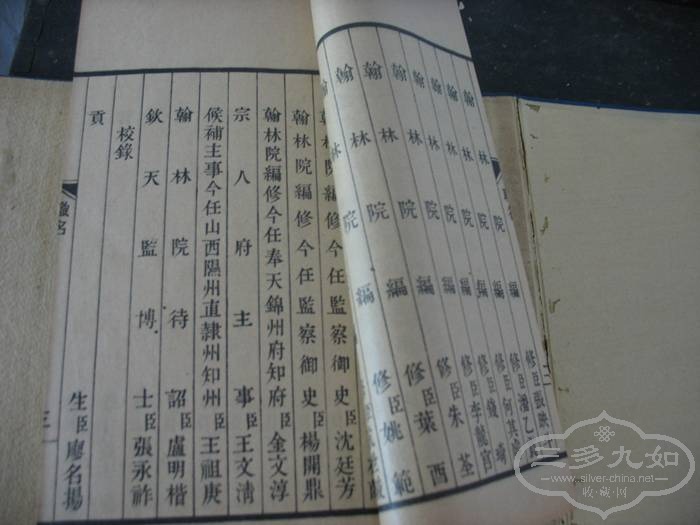 翰林院編修臣張映
翰林院編修臣潘乙
翰林院編修臣何其
翰林院編修臣
翰林院編修臣李龍官
翰林院編修臣朱荃
翰林院編修臣葉酉
翰林院編修臣姚範
翰林院編修今任監察御史臣沈廷芳
翰林院編修今任監察御史臣楊開鼎
翰林院編修今任奉天錦州府知府臣金文淳
宗人府主事臣王文清
候補主事今任山西隰州直隸州知州臣王祖庚
翰林院待詔臣盧明楷
欽天監博士臣張永祚
校錄
貢生臣廖名揚
職名
三
三多九如
www.silver-china.net
收·藏·网